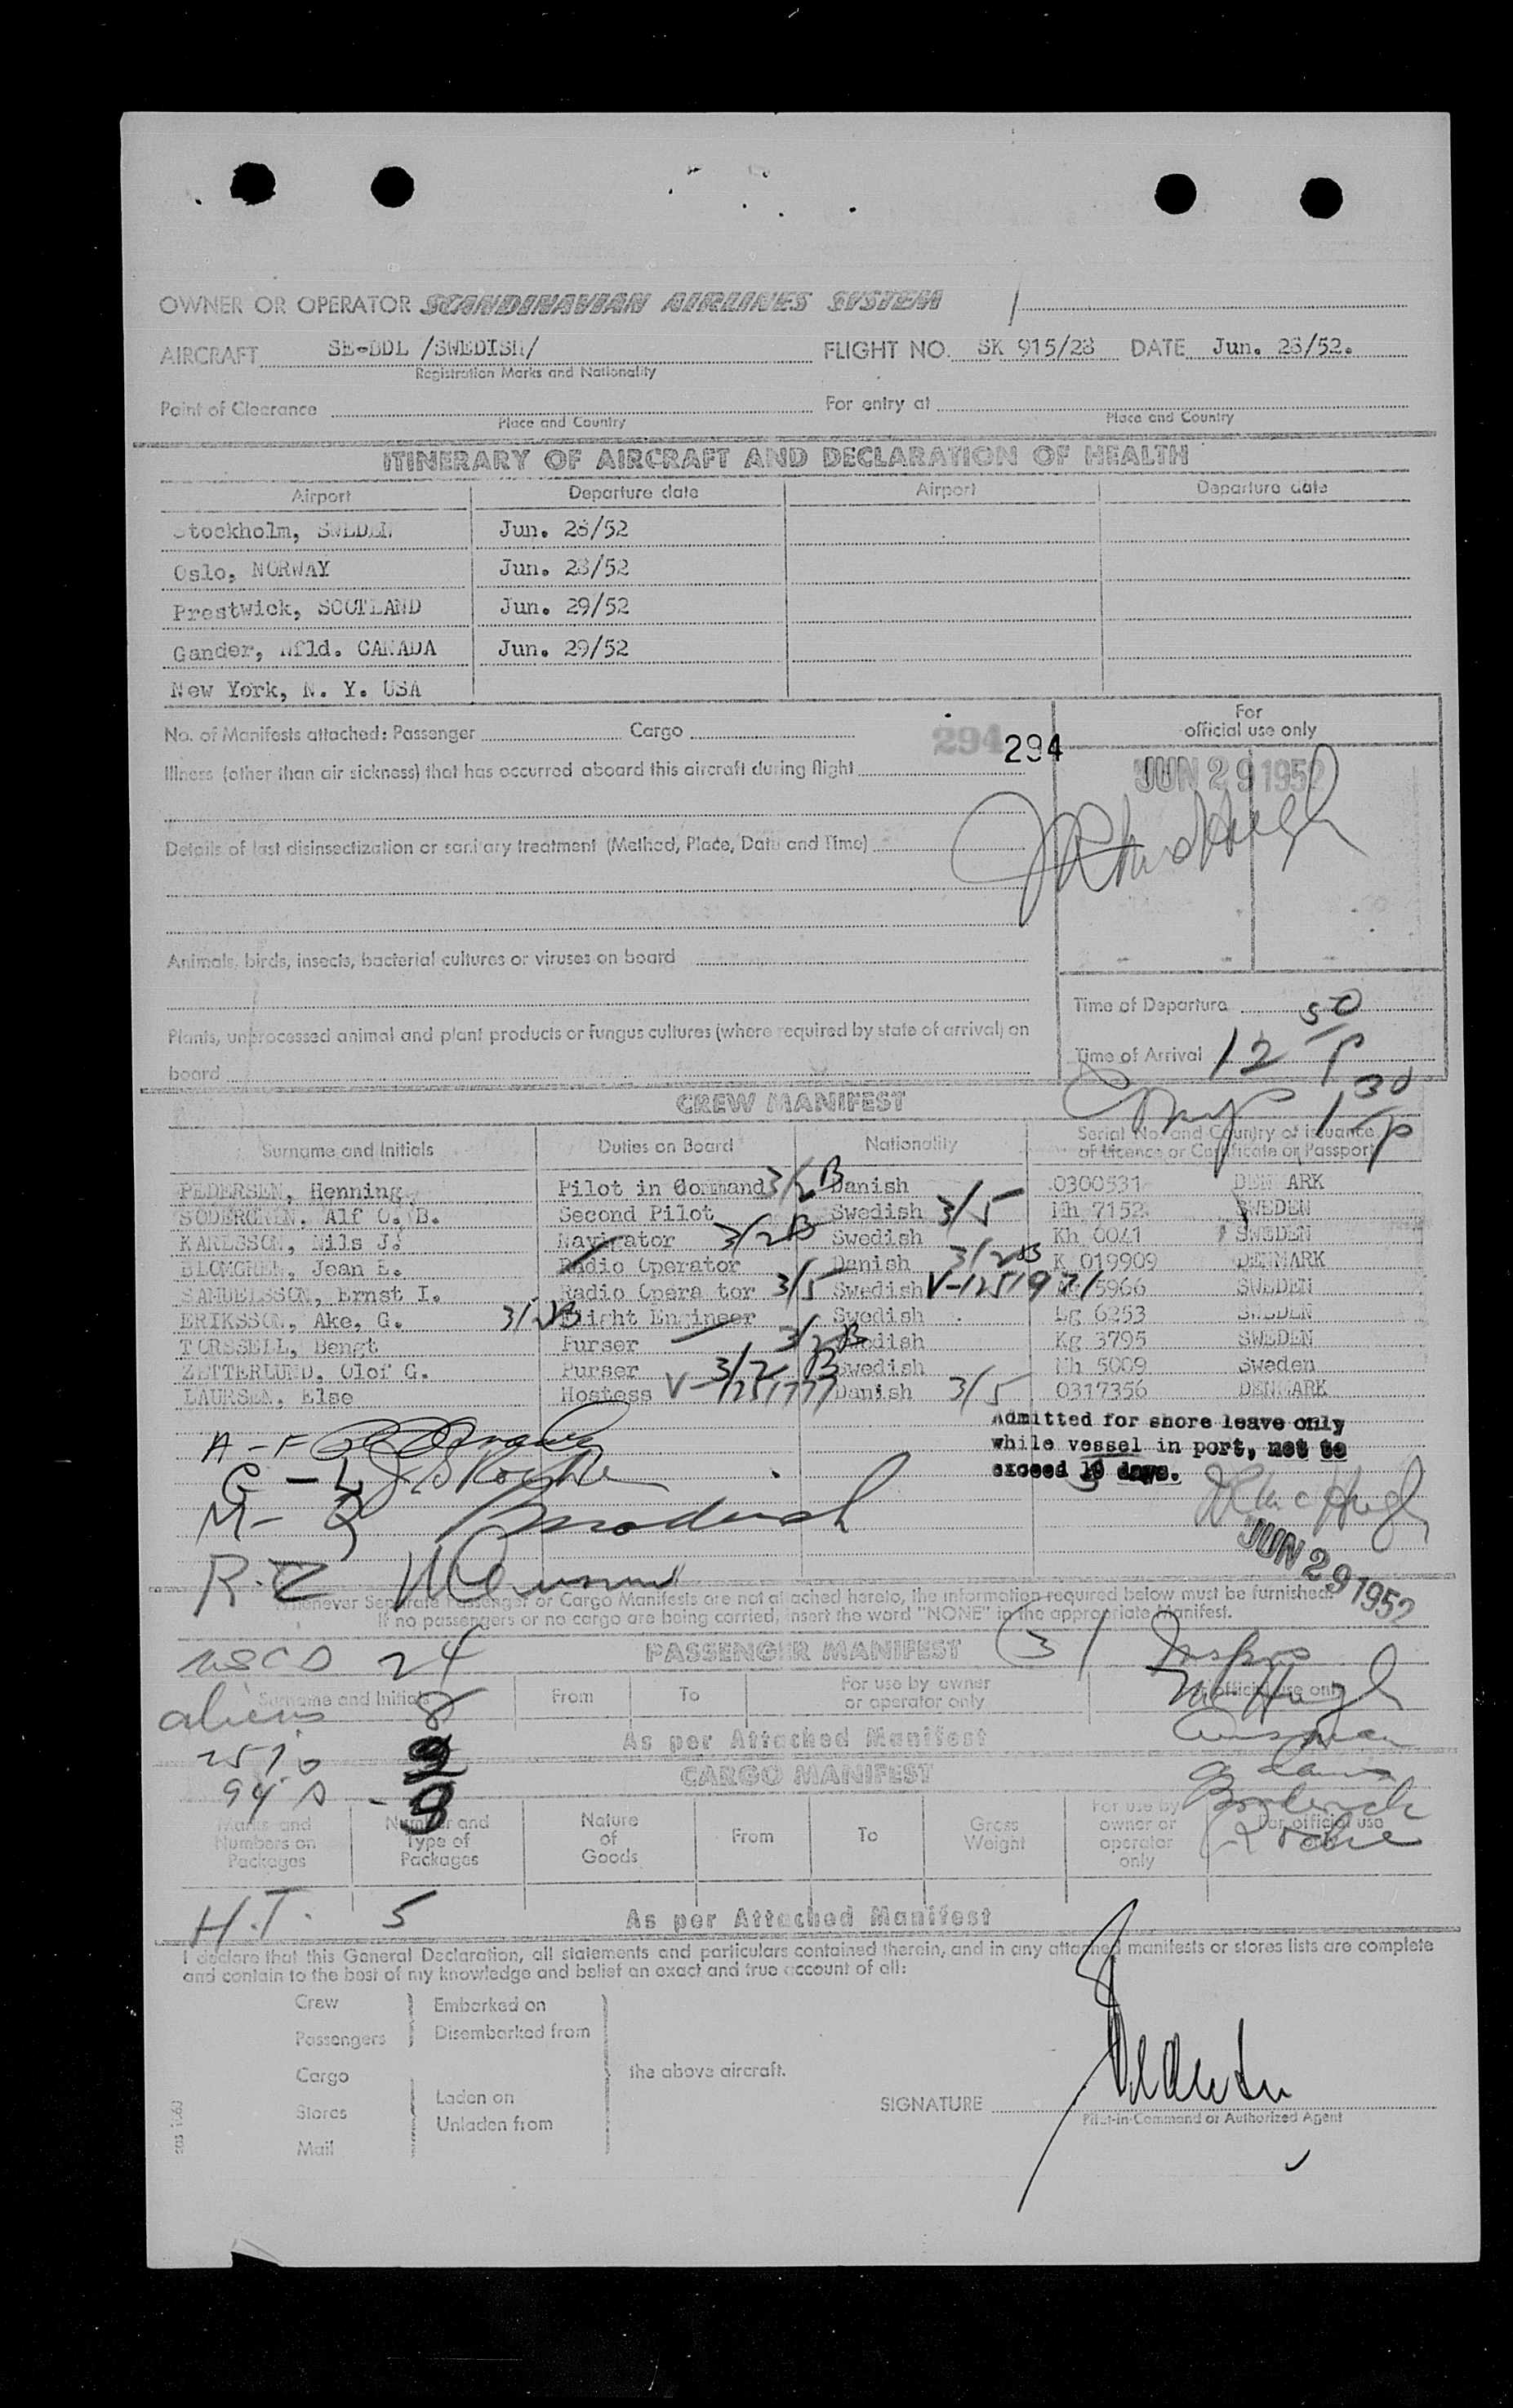 OWNER OR OPERATOR SCANDINAVIAN AIRLINES SYSTEM
AIRCRAFT SE-BDL /SWEDISH/ FLIGHT NO. SK 915/28 DATE Jun. 28/52.
Registration Marks and Nationality
Point of Clearance For entry at
Place and Country Place and Country
ITINERARY OF AIRCRAFT AND DECLARATION OF HEALTH
Airport Departure date Airport Departure date
Stockholm, SWEDEN Jun. 28/52
Oslo, NORWAY Jun. 28/52
Prestwick, SCOTLAND Jun. 29/52
Gander, Nfld. CANADA Jun. 29/52
New York, N. Y. USA
For
official use only
No. of Manifests attached: Passenger Cargo
294 294
JUN 29 1952
Illness (other than air sickness) that has occurred aboard this aircraft during flight
Details of last disinsectization or sanitary treatment (Method, Place, Date and Time)
Animals, birds, insects, bacterial cultures or viruses on board
Time of Departure
Plants, unprocessed animal and plant products or fungus cultures (where required by state of arrival) on
board
Time of Arrival 12 50 P
1 30 p
CREW MANIFEST
Surname and Initials Duties on Board Nationality Serial No. and Country of issuance
of Licence or Certificate or Passport
PEDERSEN, Henning Pilot in Command 3/2 B Danish 0300531 DENMARK
SODERGREN, Alf O. B. Second Pilot Swedish 3/5 Mh 7152 SWEDEN
KARLSSON, Nils J. Navigator 3/2B Swedish Kh 6041 SWEDEN
BLOMGREN, Jean E. Radio Operator Danish 3/2B K 019909 DENMARK
SAMUELSSON, Ernst I. Radio Opera tor 3/5 Swedish 5966 SWEDEN
ERIKSSON, Ake, G. 3/2B Flight Engineer Swedish Lg 6253 SWEDEN
TORSSELL, Bengt Purser 3/2B Swedish Kg 3795 SWEDEN
ZETTERLUND, Olof G. Purser 3/2 B Swedish Mh 5009 Sweden
LAURSEN, Else Hostess Danish 3/5 0317356 DENMARK
Admitted for shore leave only
while vessel in port, not to
exceed days.
A-F
G-L
M-Q
R-Z
McHugh
JUN 29 1952
Whenever Separate Passenger or Cargo Manifests are not attached hereto, the information required below must be furnished.
If no passengers or no cargo are being carried, insert the word "NONE" in the appropriate Manifest.
PASSENGER MANIFEST
USCS 24
Surname and Initials From To For use by owner
or operator only
For official use only
aliens 8
McHugh
As per Attached Manifest
CARGO MANIFEST
Broderick
Roche
Marks and
Numbers on
Packages Number and
Type of
Packages Nature
of
Goods From To Gross
Weight For use by
owner or
operator
only For official use
only
H.T. 5
As per Attached Manifest
I declare that this General Declaration, all statements and particulars contained therein, and in any attached manifests or stores lists are complete
and contain to the best of my knowledge and belief an exact and true account of all:
Crew Embarked on
Passengers Disembarked from
Cargo the above aircraft.
Stores Laden on
Mail Unladen from
SIGNATURE
Pilot-in-Command or Authorized Agent